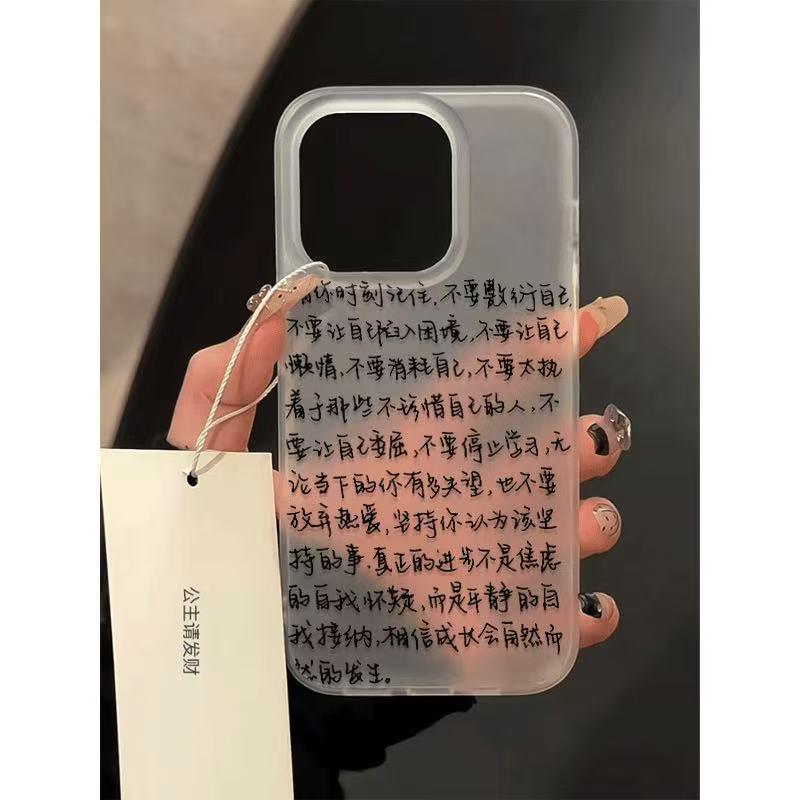 请你时刻记住,不要敷衍自己,
不要让自己陷入困境,不要让自己
懒惰,不要消耗自己,不要太执
着于那些不珍惜自己的人,不
要让自己委屈,不要停止学习,无
论当下的你有多失望,也不要
放弃热爱,坚持你认为该坚
持的事.真正的进步不是焦虑
的自我怀疑,而是平静的自
我接纳,相信成长会自然而
然的发生。
公主请发财